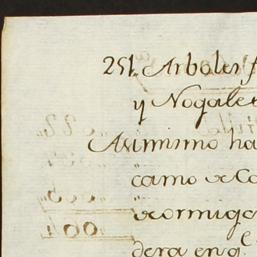 251. Arboles f
y Nogale
Asimismo ha
camo de Co
de ormigo
dera en q.e